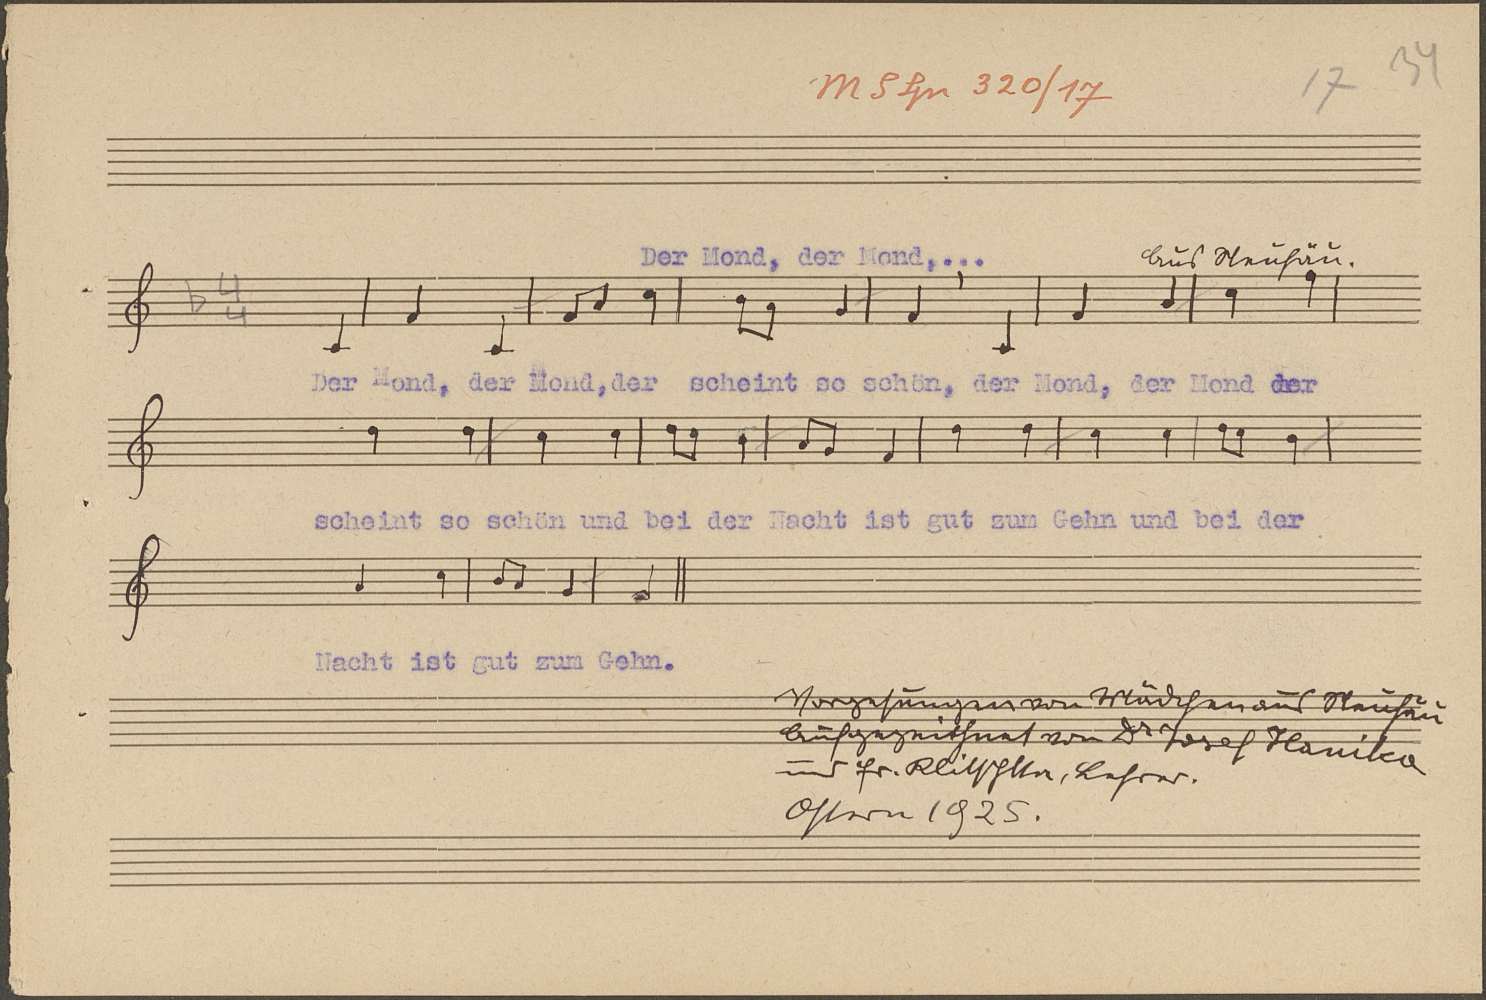 M S Spr 320/17
17 34
Der Mond, der Mond,...
Aus Neuhäu.
4
4
Der Mond, der Mond,der scheint so schön, der Mond, der Mond der
scheint so schön und bei der Nacht ist gut zum Gehn und bei der
Nacht ist gut zum Gehn.
Vorgesungen von Mädchen aus Neuhäu
Aufgezeichnet von Dr Josef Hanika
und Fr. Klitschka, Lehrer.
Ostern 1925.